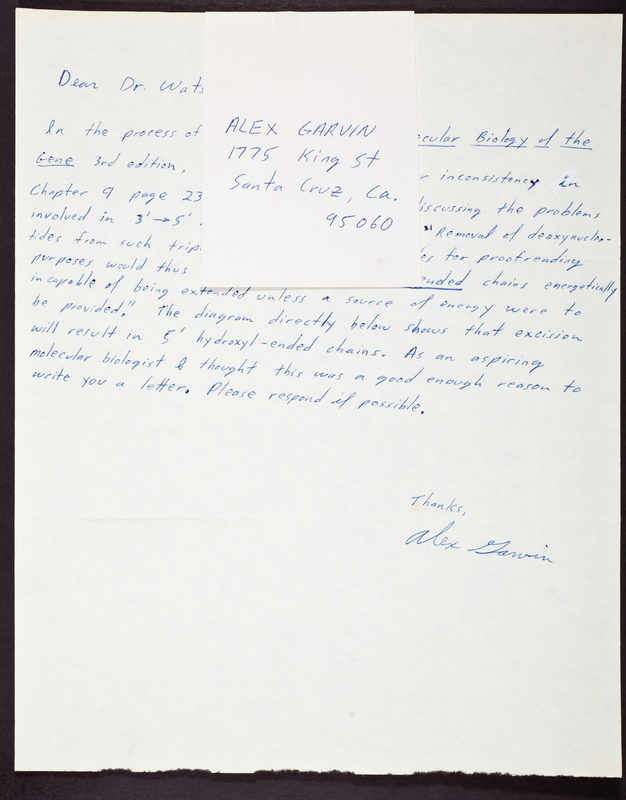 Dear Dr. Wats
In the process of
ecular Biology of the
Gene 3rd edition,
r inconsistency in
Chapter 9 page 23
discussing the problems
involved in 3'→5'
"Removal of deoxynucleo-
tides from such trip
es for proofreading
purposes would thus
ended chains energetically
incapable of being extended unless a source of energy were to
be provided." The diagram directly below shows that excision
will result in 5' hydroxyl-ended chains. As an aspiring
molecular biologist I thought this was a good enough reason to
write you a letter. Please respond if possible.
Thanks,
Alex Garvin
ALEX GARVIN
1775 King St
Santa Cruz, Ca.
95060